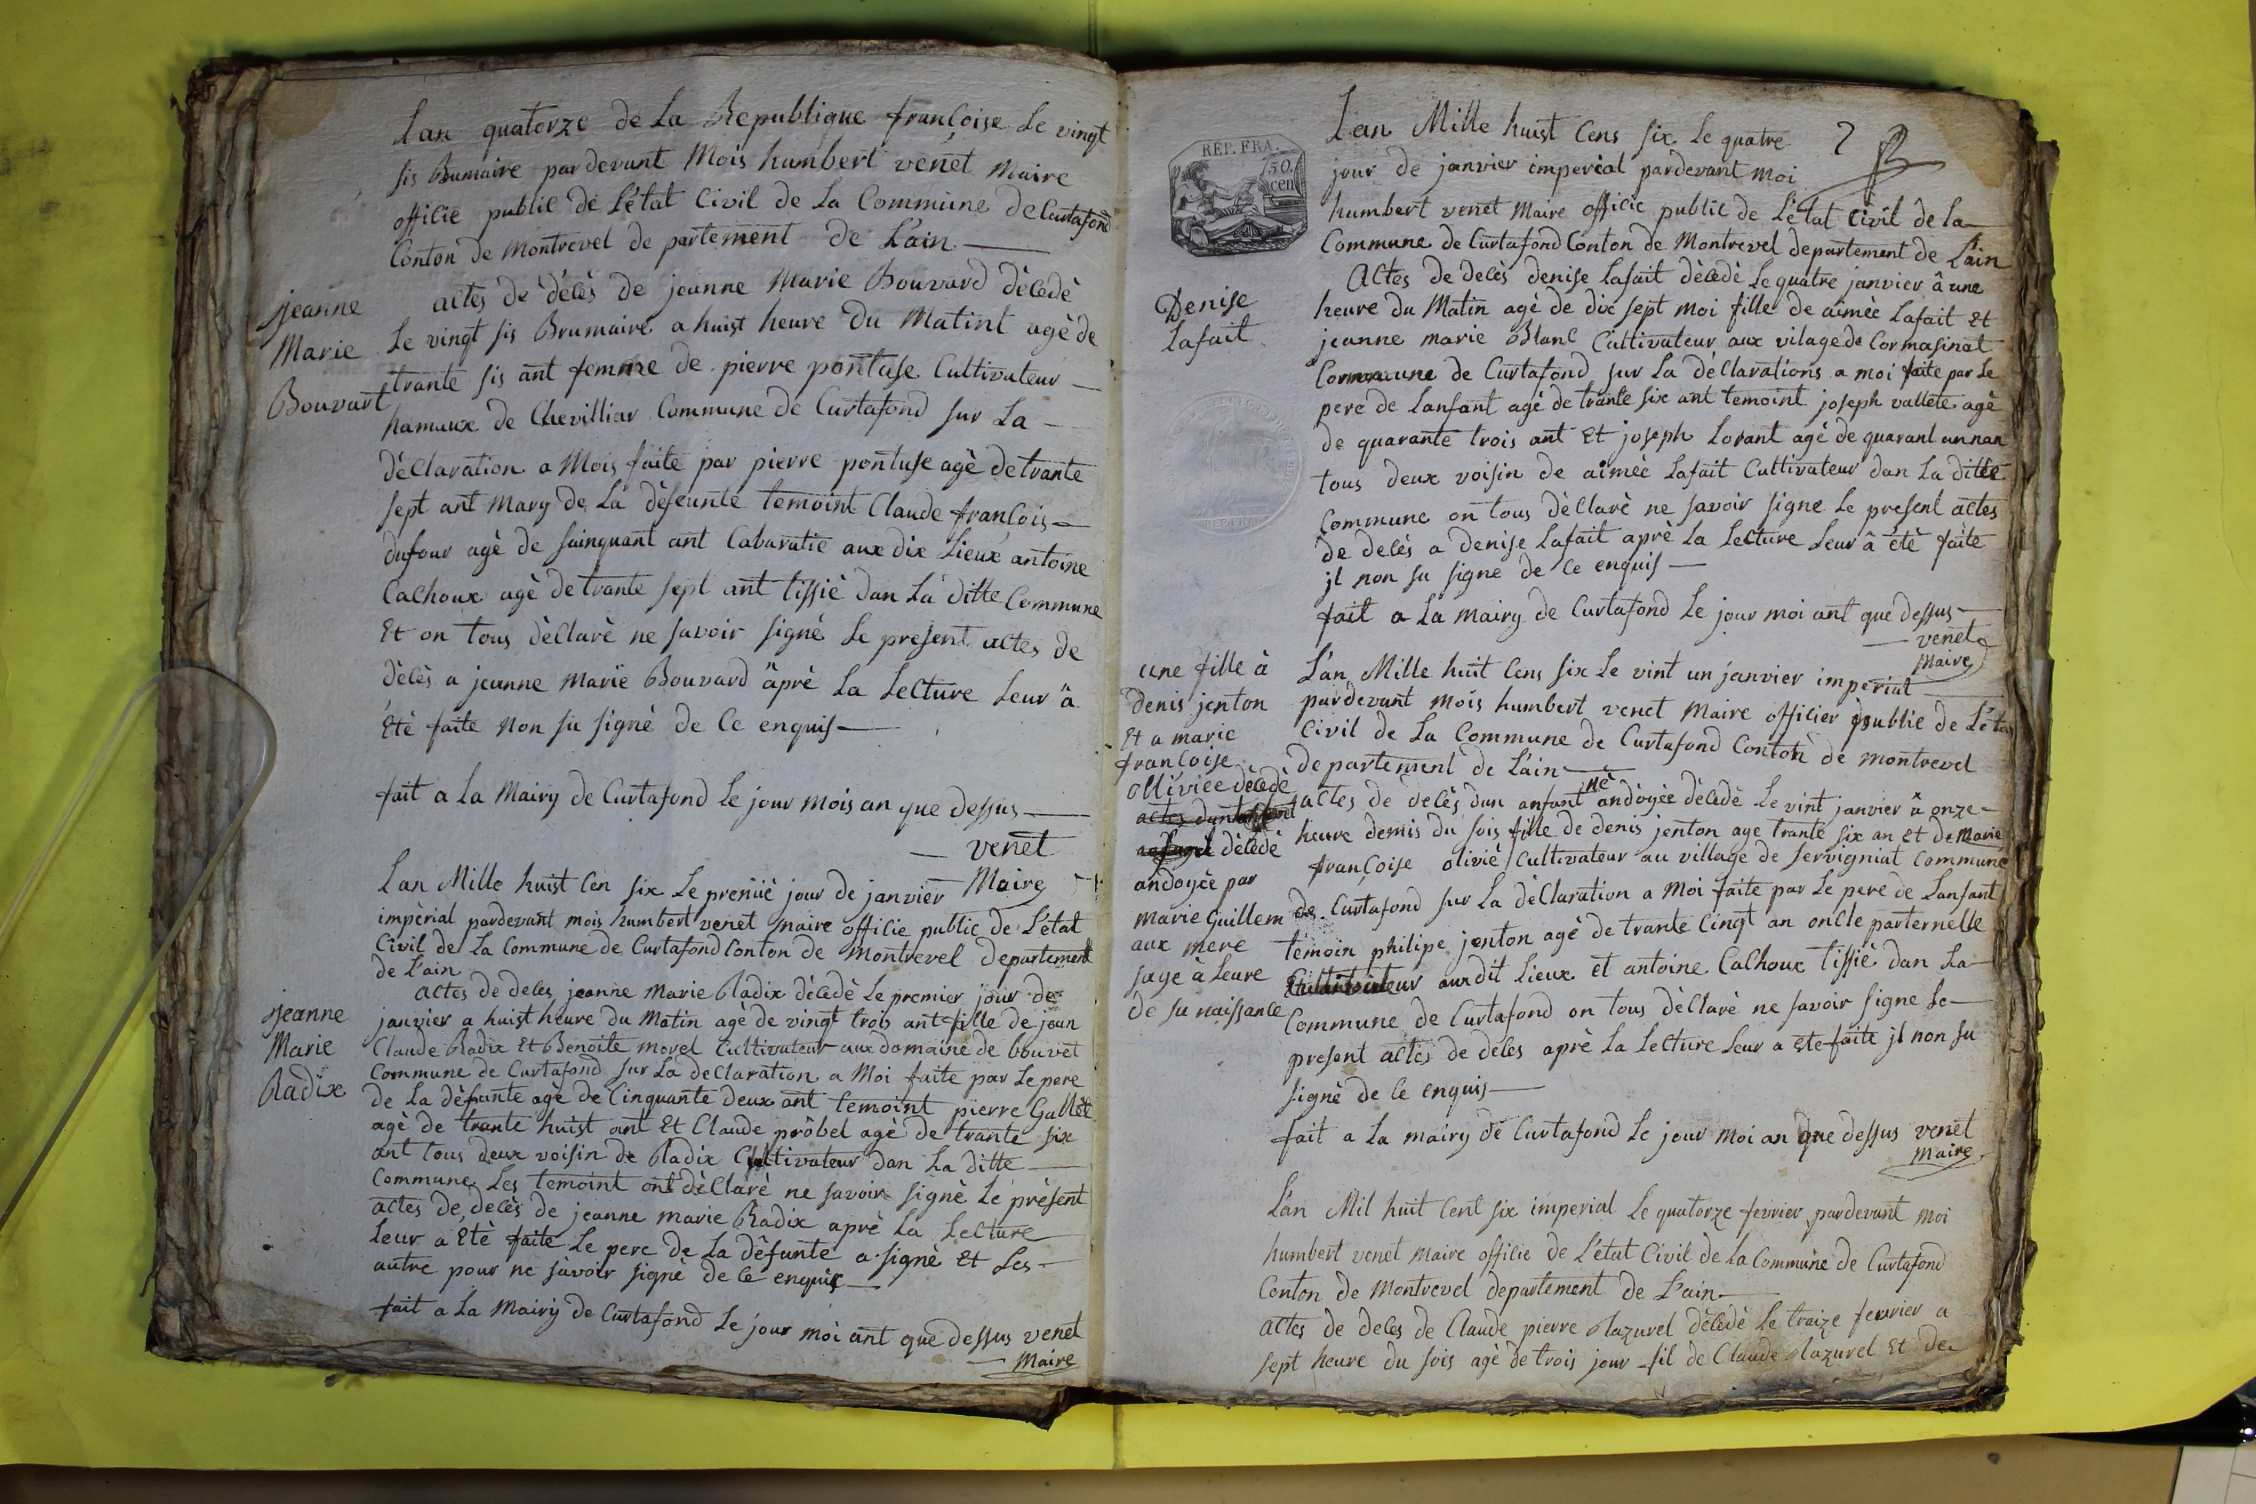 Lan quatorze de La Republique françoise Le vingt
sis Brumaire pardevant Mois humbert venet Maire
officie public de L'état Civil de La Commune de Curtafond
Conton de Montrevel de partement de L'ain
actes de délès de jeanne Marie Bouvard dèledè
jeanne
Marie
Bouvart
Le vingt sis Brumaire a huist heure du Matint agè de
trante sis ant femme de pierre pontuse Cultivateur
hamaux de Chevilliar Commune de Curtafond sur La
dèclaration a Mois faite par pierre pontuse agè de trante
sept ant Mary de La dèfeunte temoint Claude françois
dufour agè de sainquant ant Cabaratie aux dix Lieux antoine
Calhoux agè de trante sept ant tissiè dan La ditte Commune
Et on tous dèclarè ne savoir signé Le present actes de
dèlès a jeanne Marie Bouvard aprè La Lecture Leur a
Etè faite non su signè de Ce enquis
fait a La Mairy de Curtafond Le jour mois an que dessus
venet
Maire
Lan Mille huist Cen six Le premiè jour de janvier
impèrial pardevant mois humbert venet maire officie public de L'état
Civil de La Commune de Curtafond Conton de Montrevel departement
de L'ain
actes de deles jeanne Marie Radix dèledè Le premier jour de
jeanne
Marie
Radix
janvier a huist heure du Matin agè de vingt trois ant fille de jean
Claude Radix Et Benoite morel Cultivateur aux domaine de bouvet
Commune de Curtafond sur La declaration a Moi faite par Le pere
de La dèfunte agè de Cinquante deux ant temoint pierre Gallet
agè de trante huist ant Et Claude pròbel agè de trante six
ant tous deux voisin de Radix Cultivateur dan La ditte
Commune Les temoint ont dèclarè ne savoir signè Le prèsent
actes de delès de jeanne marie Radix aprè La Lecture
Leur a Etè faite Le pere de La dèfunte a signè Et Les
autre pour ne savoir signè de Ce enquis
fait a La Mairy de Curtafond Le jour moi ant que dessus venet
Maire
REP. FRA.
50.
cen
Lan Mille huist Cens six Le quatre 2
jour de janvier imperial pardevant moi
humbert venet Maire officie public de L'état Civil de La
Commune de Curtafond Conton de Montrevel departement de L'ain
Actes de delès denise Lafait dèledè Le quatre janvier à une
Denise
Lafait
heure du Matin agè de dix sept moi fille de aimèe Lafait Et
jeanne marie Blanc Cultivateur aux vilage de Cormasinat
Commune de Curtafond sur La dèclarations a moi faite par Le
pere de Lanfant agè de trante six ant temoint joseph vallete agè
de quarante trois ant Et joseph Lorant agè de quarant un nan
tous deux voisin de aimèe Lafait Cultivateur dan La ditte
Commune on tous dèclarè ne savoir signe Le present actes
de delès a denise Lafait aprè La Lecture Leur à étè faite
jl non su signe de Ce enquis
fait a La Mairy de Curtafond Le jour moi ant que dessus
venet
Maire
une fille à
denis jenton
Et a marie
françoise
olliviee dèledè
actes dun
dèledè
andoyèe par
marie Guillem
aux mere
sage à Leure
de su naissance
L'an Mille huit Cens six Le vint un janvier imperial
pardevant mois humbert venet Maire officier publie de L'éta
Civil de La Commune de Curtafond Conton de montrevel
departement de L'ain
actes de delès dun anfant né andoyèe dèledè Le vint janvier à onze
heure demis du sois fille de denis jenton age trante six an Et de Marie
françoise oliviè Cultivateur au village de servigniat Commune
de Curtafond sur La dèclaration a Moi faite par Le pere de Lanfant
temoin philipe jenton agè de trante Cingt an oncle parternelle
Cultivateur aux dit Lieux et antoine Calhoux tissiè dan La
Commune de Curtafond on tous dèclarè ne savoir signe Le
present actes de dèles aprè La Lecture Leur a Ete faite jl non su
signè de Ce enquis
fait a La mairy de Curtafond Le jour moi an que dessus venet
Maire
L'an Mil huit Cent six imperial Le quatorze fevrier pardevant moi
humbert venet Maire officie de L'état Civil de La Commune de Curtafond
Conton de Montrevel departement de L'ain
actes de deles de Claude pierre Razurel dèledè Le traize fevrier a
sept heure du sois agè de trois jour fil de Claude Razurel Et de